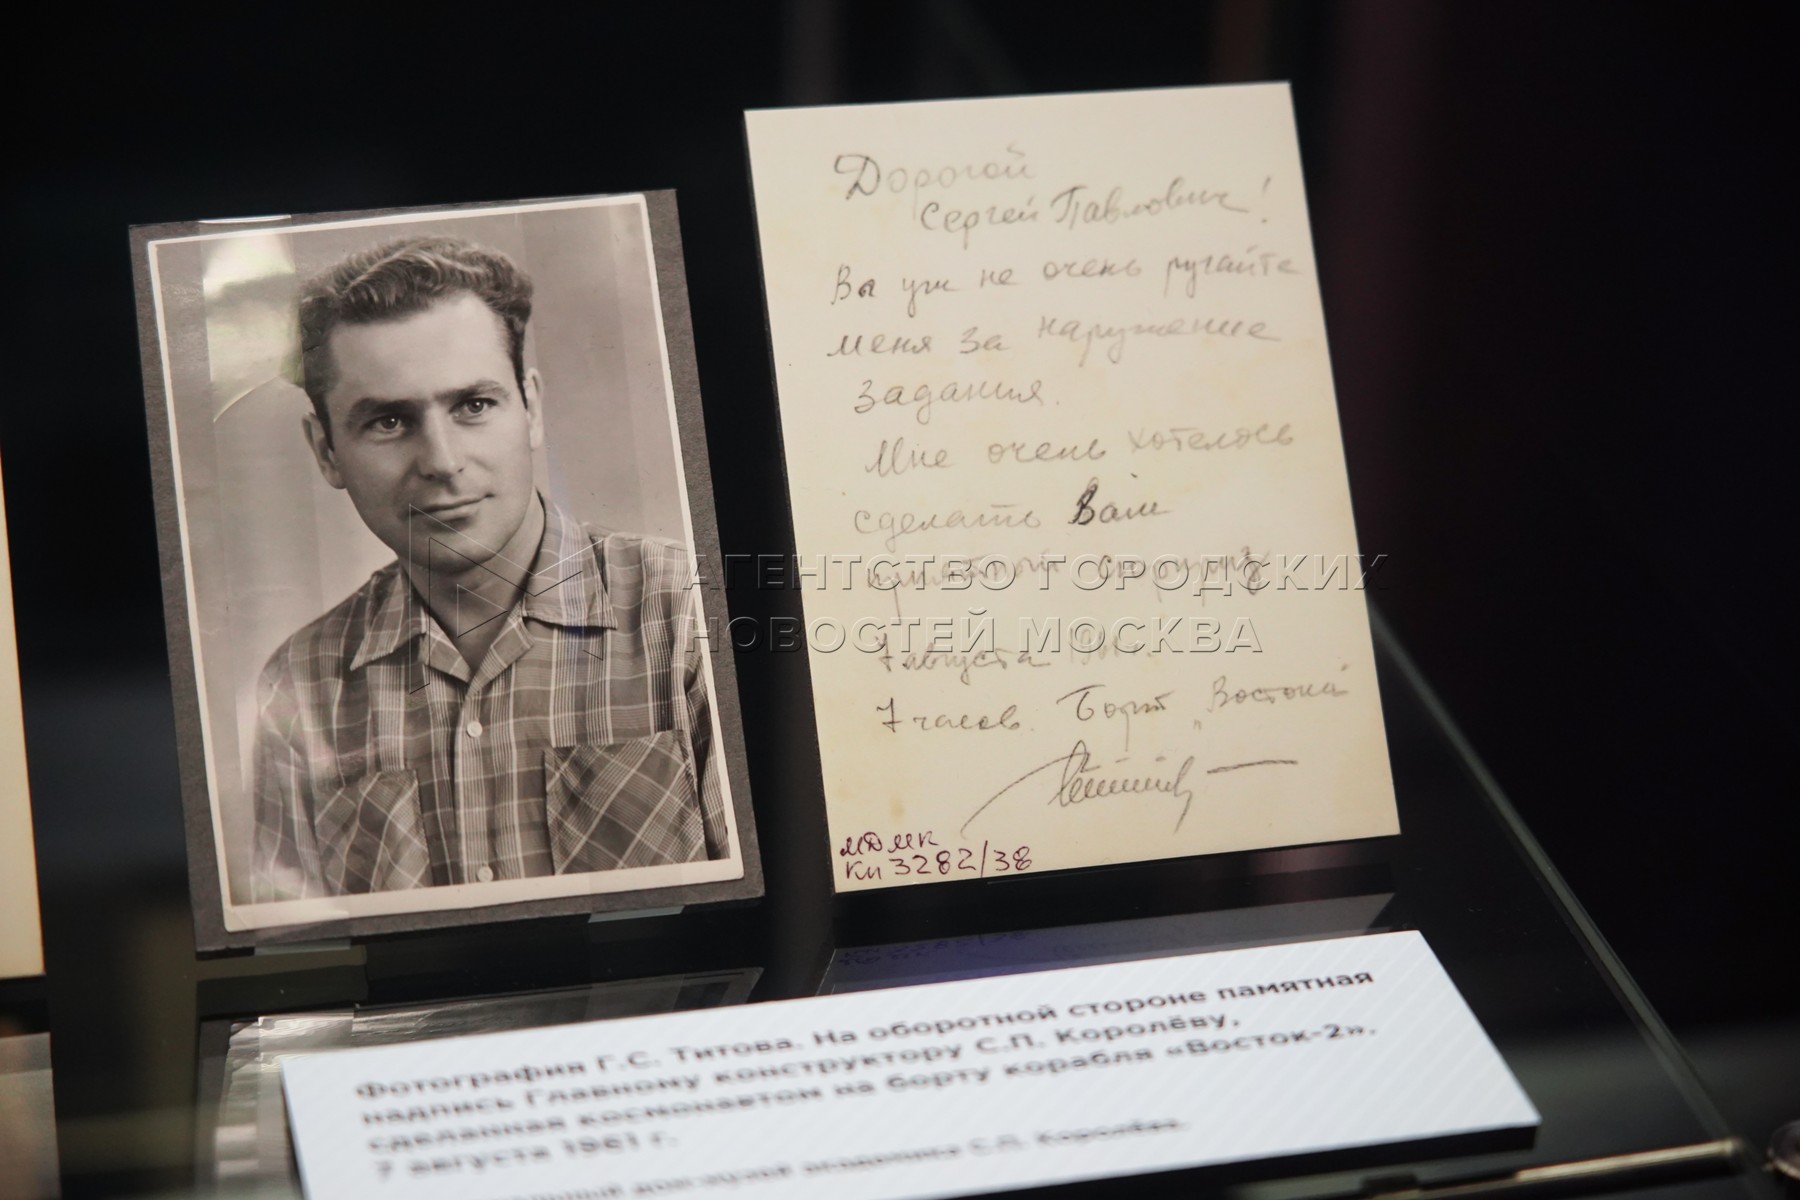 Дорогой
Сергей Павлович!
Вы уж не очень ругайте
меня за нарушение
задания.
Мне очень хотелось
сделать Вам
приятный сюрприз
7 августа 1961 г.
7 часов. Борт „Востока"
МДМК
КП 3282/38
АГЕНТСТВО ГОРОДСКИХ
НОВОСТЕЙ МОСКВА
Фотография Г.С. Титова. На оборотной стороне памятная
надпись Главному конструктору С.П. Королёву,
сделанная космонавтом на борту корабля «Восток-2».
7 августа 1961 г.
дом-музей академика С.П. Королёва.